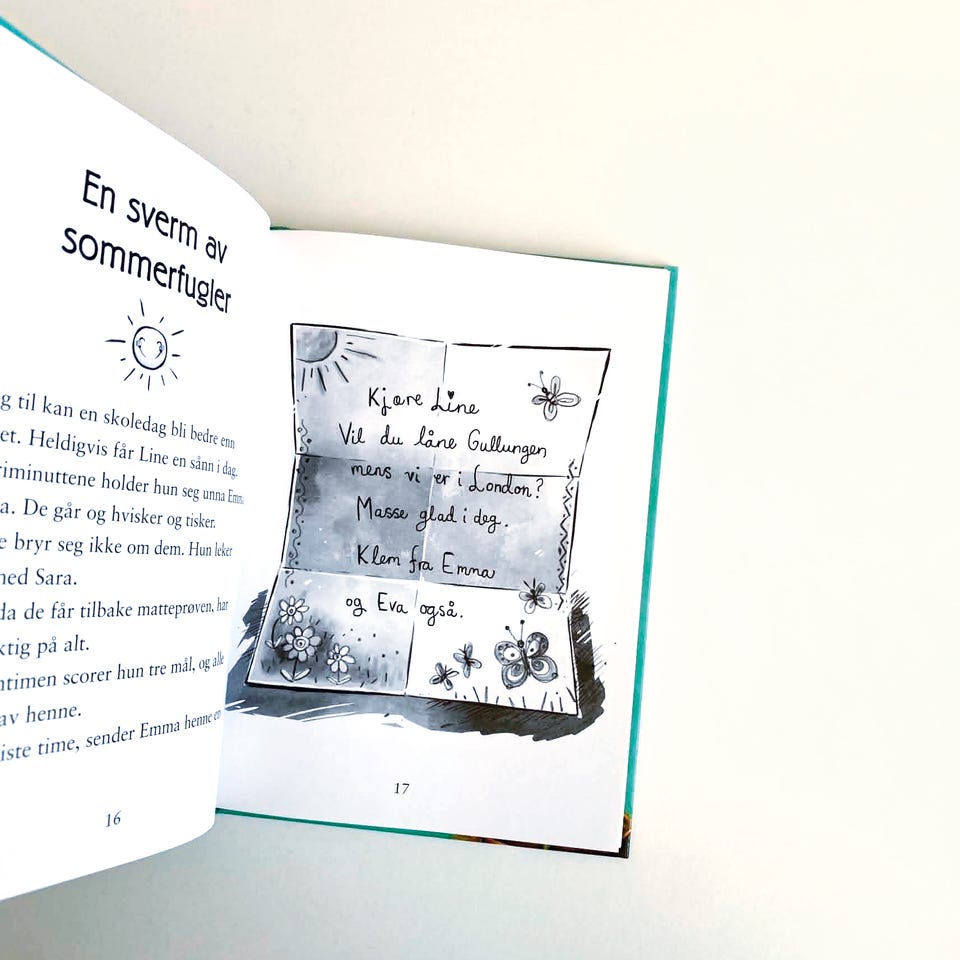 En sverm av
sommerfugler
g til kan en skoledag bli bedre enn
et. Heldigvis får Line en sånn i dag.
riminuttene holder hun seg unna Emma
a. De går og hvisker og tisker.
e bryr seg ikke om dem. Hun leker
ned Sara.
da de får tilbake matteprøven, har
ktig på alt.
ntimen scorer hun tre mål, og alle
av henne.
iste time, sender Emma henne en
16
Kjære Line
Vil du låne Gullungen
mens vi er i London?
Masse glad i deg.
Klem fra Emma
og Eva også.
17